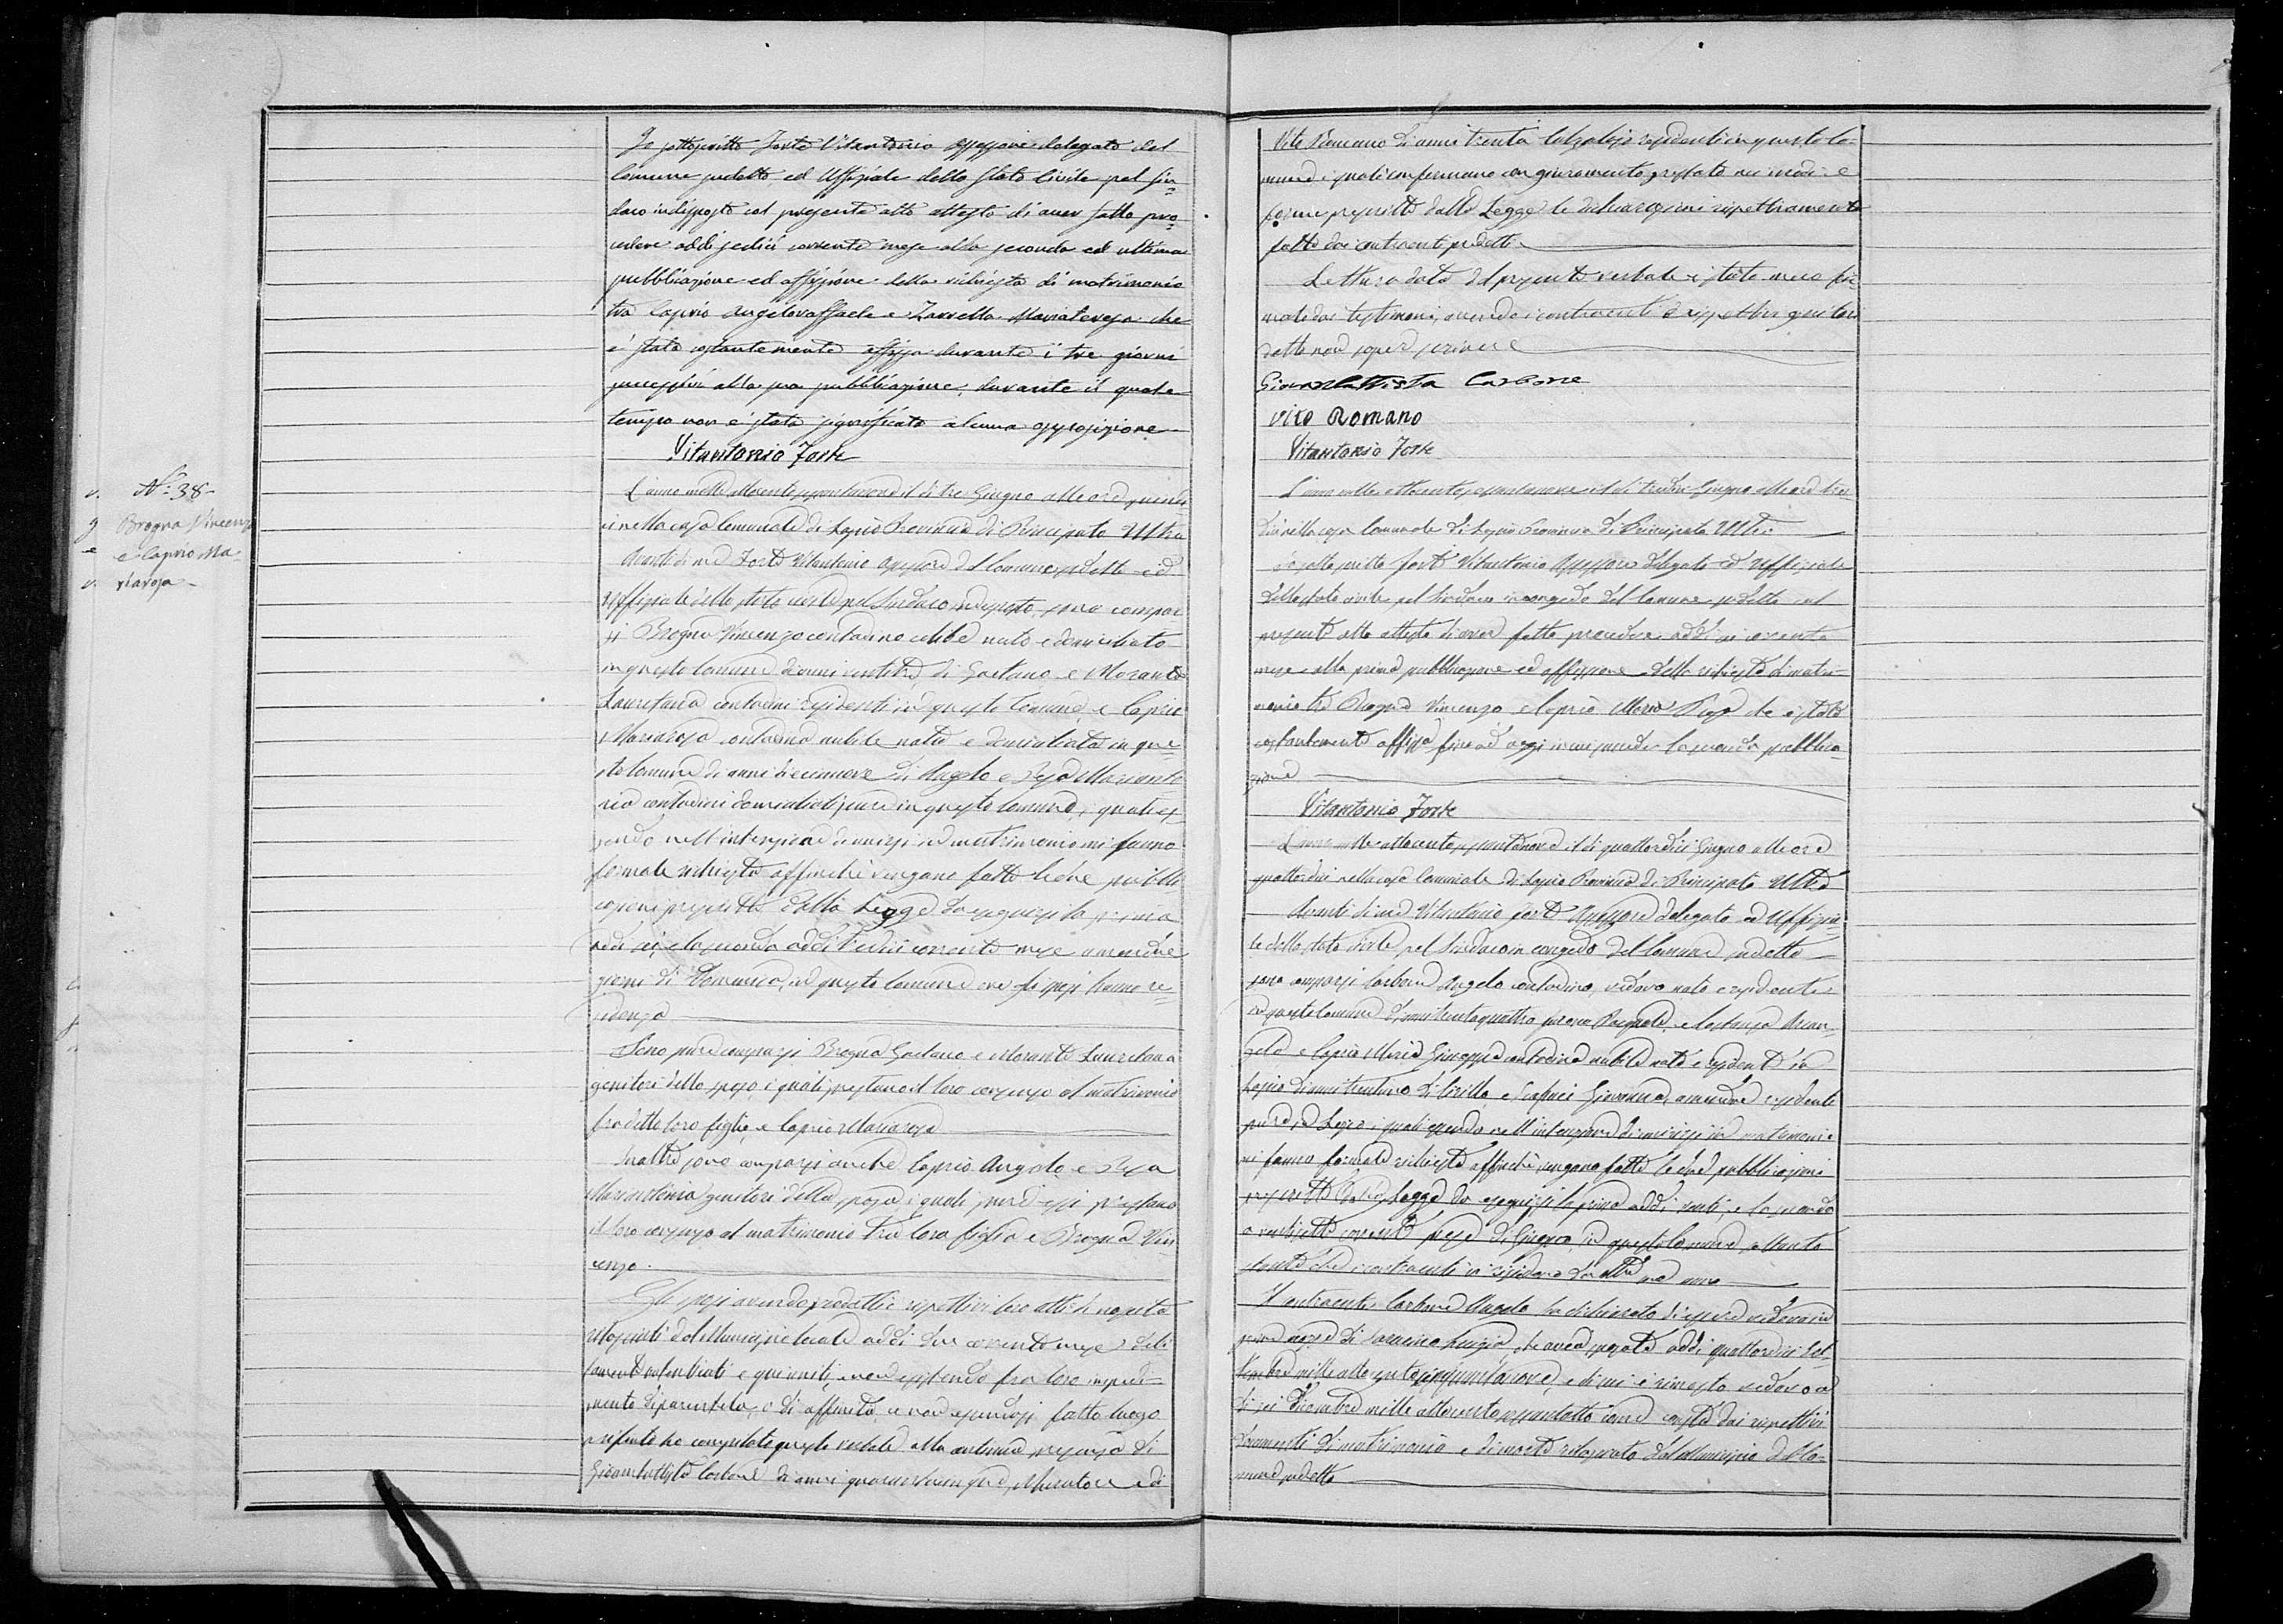 Io sottoscritto Forte Vitantonio Assessore delegato del
Comune sudetto ed Uffiziale dello Stato Civile pel Sin=
daco indisposto col presente atto attesto di aver fatto pro=
cedere addì sedici corrente mese alla seconda ed ultima
pubblicazione ed affissione della richiesta di matrimonio
tra Caprio Angeloraffaele e Zarrella Mariateresa che
è stata costantemente affissa durante i tre giorni
successivi alla sua pubblicazione, durante il quale
tempo non è stata significata alcuna opposizione
Vitantonio Forte
N.º 38-
Brogna Vincenzo
e Caprio Ma-
riarosa-
L'anno mille ottocentosessantanove il dì tre Giugno alle ore quindi
ci nella casa Comunale di Lapio Provincia di Principato Ultra
Avanti di me Forte Vitantonio Assessore del Comune sudetto ed
Uffiziale dello stato civile pel Sindaco indisposto sono compar
si Brogna Vincenzo contadino celibe nato e domiciliato
in questo Comune di anni ventitre di Gaetano e Morante
Lauretana contadini residenti in questo Comune, e Caprio
Mariarosa contadina nubile nata e domiciliata in que=
sto Comune di anni diecinnove di Angelo e Mariaanto
nia contadini domiciliati pure in questo Comune, i quali es
sendo nell'intenzione di unirsi in matrimonio mi fanno
formale richiesta affinchè vengano fatte le due pubbli
cazioni prescritte dalla Legge da eseguirsi la prima
addì sei, e la seconda addì tredici corrente mese amendue
giorni di Domenica, in questo Comune ove gli sposi hanno re=
sidenza
Sono pure comparsi Brogna Gaetano e Morante Lauretana
genitori dello sposo, i quali prestano il loro consenso al matrimonio
fra detto loro figlio e Caprio Mariarosa
Inoltre sono comparsi anche Caprio Angelo e
Mariantonia genitori della sposa i quali pure essi prestano
il loro consenso al matrimonio tra loro figlia e Brogna Vin
cenzo.
Gli sposi avendo prodotti i rispettivi loro atti di nascita
rilasciati dal Municipio locale addì due corrente mese debi
tamente autenticati e quì uniti, e non esistendo fra loro impedi-
mento di parentela, o di affinità, e non essendosi fatto luogo
a rifiuto ho compilato questo verbale alla continua presenza di
Giambattista Carbone di anni quarantacinque, Muratore e di
Vito Romano di anni trenta Calzolajo residenti in questo Co=
mune i quali confermano con giuramento prestato nei modi e
forme prescritte dalla Legge le dichiarazioni rispettivamente
fatte dai contraenti sudetti
Lettura data del presente verbale è stato meco fir=
mato dai testimoni, avendo i contraenti e rispettivi genitori
detto non sapere scrivere
Giovanbattista Carbone
Vito Romano
Vitantonio Forte
L'anno mille ottocentosessantanove il dì tredici Giugno alle ore tre=
dici nella casa Comunale di Lapio Provincia di Principato Ultra
Io sottoscritto Forte Vitantonio Assessore delegato ed Uffiziale
dello stato civile pel Sindaco in congedo del Comune sudetto col
presente atto attesto di aver fatto procedere addì sei corrente
mese alla prima pubblicazione ed affissione della richiesta di matri-
monio tra Brogna Vincenzo e Caprio Maria Rosa che è stata
costantemente affissa fino ad oggi la seconda pubblica=
zione
Vitantonio Forte
L'anno mille ottocentosessantanove il dì quattordici Giugno alle ore
quattordici nella casa Comunale di Lapio Provincia di Principato Ultra
Avanti di me Vitantonio Forte Assessore delegato ed Uffizia=
le dello stato civile pel Sindaco in congedo del Comune sudetto
sono comparsi Carbone Angelo contadino, vedovo nato e residente
in questo Comune di anni trentaquattro furono Pasquale, e Costanza Arcan=
gela e Caprio Maria Giuseppa contadina nubile nata e residente in
Lapio di anni trentuno di Cirillo, e Giovanna, amendue residenti
pure in Lapio i quali essendo nell'intenzione di unirsi in matrimonio
mi fanno formale richiesta affinchè vengano fatte le due pubblicazioni
prescritte dalla Legge da eseguirsi la prima addì venti, e la seconda
a ventisette corrente mese di Giugno, in questo Comune soltanto
stante che i contraenti vi risiedono da oltre un anno
Il contraente Carbone Angelo ha dichiarato di essere vedovo in
prime nozze di che avea sposata addì quattordici Set=
tembre mille ottocentocinquantanove, e di cui è rimasto vedovo a
dì sei Dicembre mille ottocentosessantotto come consta dai rispettivi
documenti di matrimonio e di morte rilasciato dal Municipio del Co=
mune sudetto